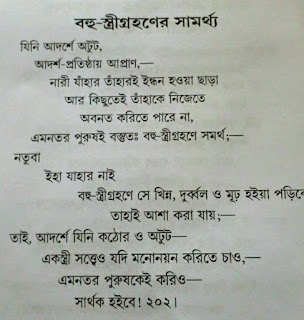 বহু-স্ত্রীগ্রহণের সামর্থ্য
যিনি আদর্শে অটুট,
আদর্শ-প্রতিষ্ঠায় আপ্রাণ,—
নারী যাঁহার তাঁহারই ইন্ধন হওয়া ছাড়া
আর কিছুতেই তাঁহাকে নিজেতে
অবনত করিতে পারে না,
এমনতর পুরুষই বস্তুতঃ বহু-স্ত্রীগ্রহণে সমর্থ;—
নতুবা
ইহা যাহার নাই
বহু-স্ত্রীগ্রহণে সে খিন্ন, দুর্ব্বল ও মূঢ় হইয়া পড়িবে
তাহাই আশা করা যায়;—
তাই, আদর্শে যিনি কঠোর ও অটুট—
একস্ত্রী সত্ত্বেও যদি মনোনয়ন করিতে চাও,—
এমনতর পুরুষকেই করিও—
সার্থক হইবে! ২০২।